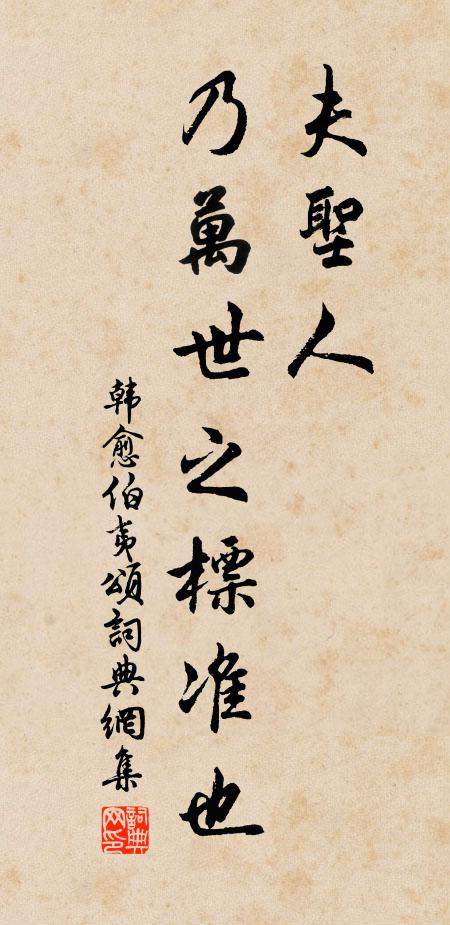 夫聖人
乃萬世之標准也
韩愈伯夷頌詞典網集
詞典网印